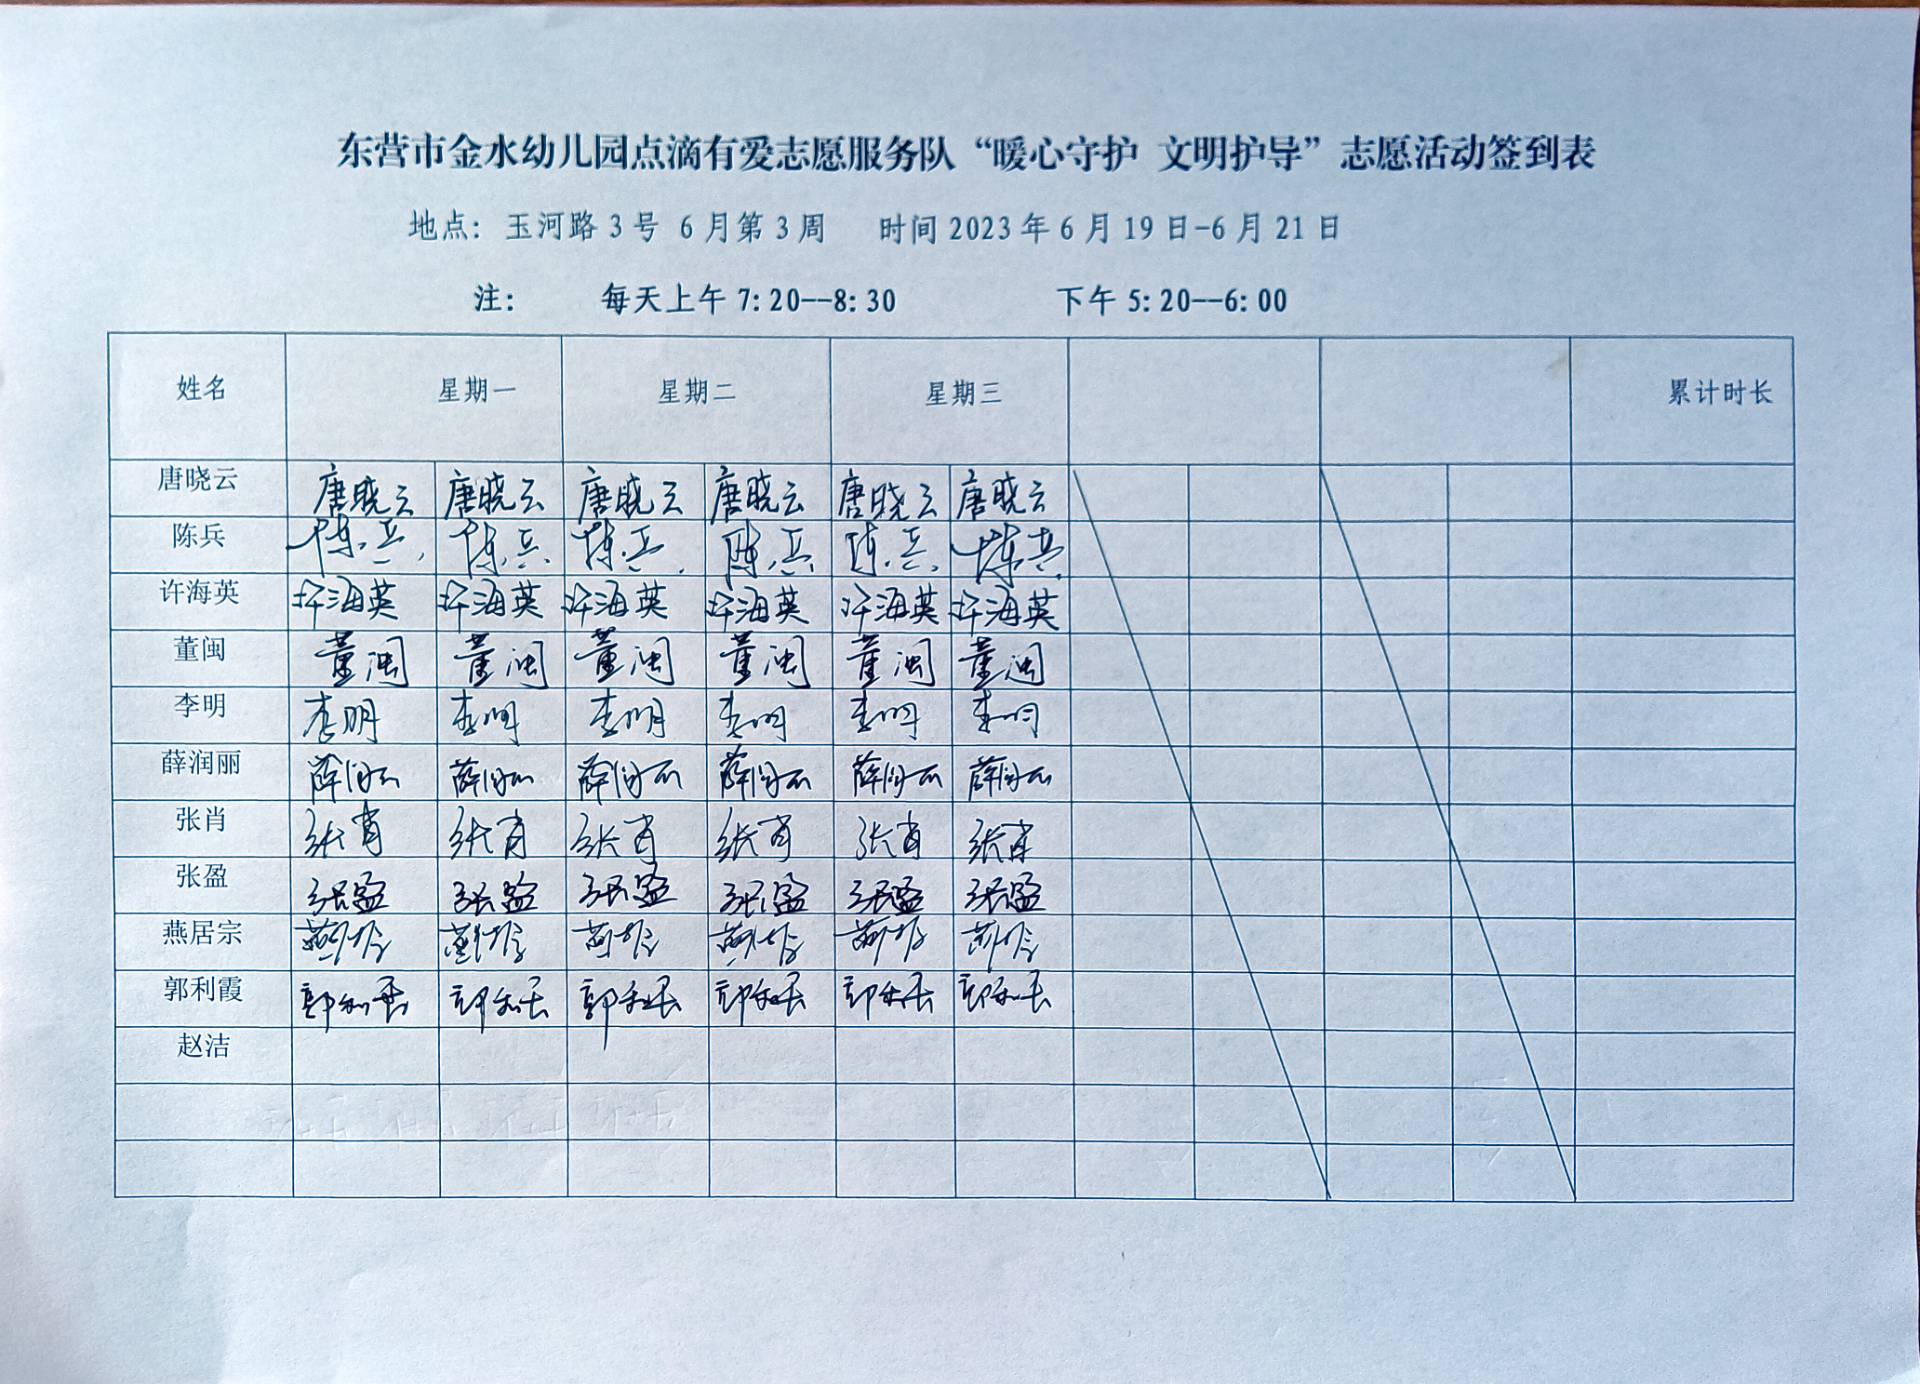 东营市金水幼儿园点滴有爱志愿服务队“暖心守护 文明护导”志愿活动签到表
地点：玉河路3号 6月第3周 时间2023年6月19日-6月21日
注： 每天上午7:20--8:30 下午5:20--6:00
姓名 星期一 星期二 星期三 累计时长
唐晓云 唐晓云 唐晓云 唐晓云 唐晓云 唐晓云 唐晓云
陈兵 陈兵 陈兵 陈兵 陈兵 陈兵 陈兵
许海英 许海英 许海英 许海英 许海英 许海英 许海英
董闽 董闽 董闽 董闽 董闽 董闽 董闽
李明 李明 李明 李明 李明 李明 李明
薛润丽 薛润丽 薛润丽 薛润丽 薛润丽 薛润丽 薛润丽
张肖 张肖 张肖 张肖 张肖 张肖 张肖
张盈 张盈 张盈 张盈 张盈 张盈 张盈
燕居宗 燕居宗 燕居宗 燕居宗 燕居宗 燕居宗 燕居宗
郭利霞 郭利霞 郭利霞 郭利霞 郭利霞 郭利霞 郭利霞
赵洁